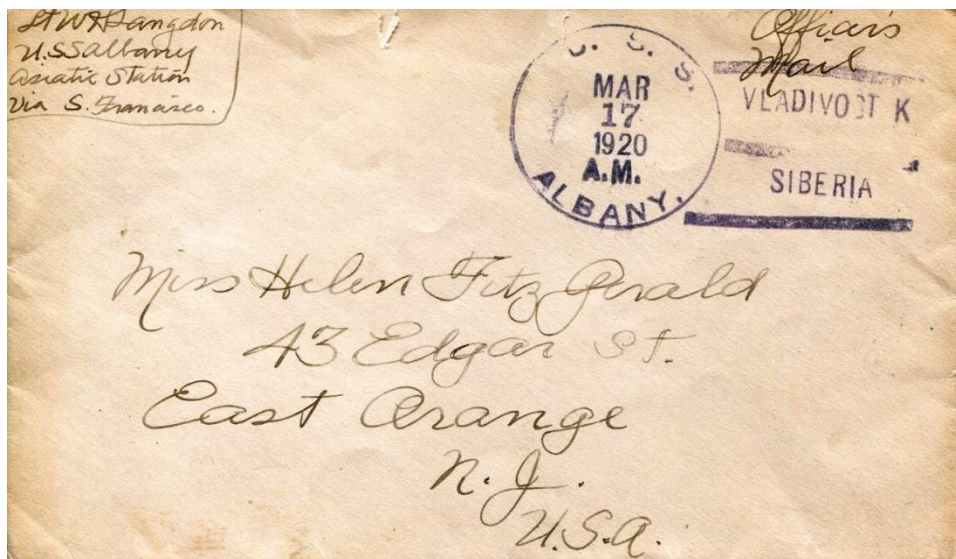 Lt W H Langdon
U.S.S Albany
Asiatic Station
Via S. Francisco.
Officer's
Mail
U. S. S.
MAR
17
1920
A.M.
ALBANY.
VLADIVOST K
SIBERIA
Miss Helen Fitz Gerald
43 Edgar St.
East Orange
N.J.
U.S.A.